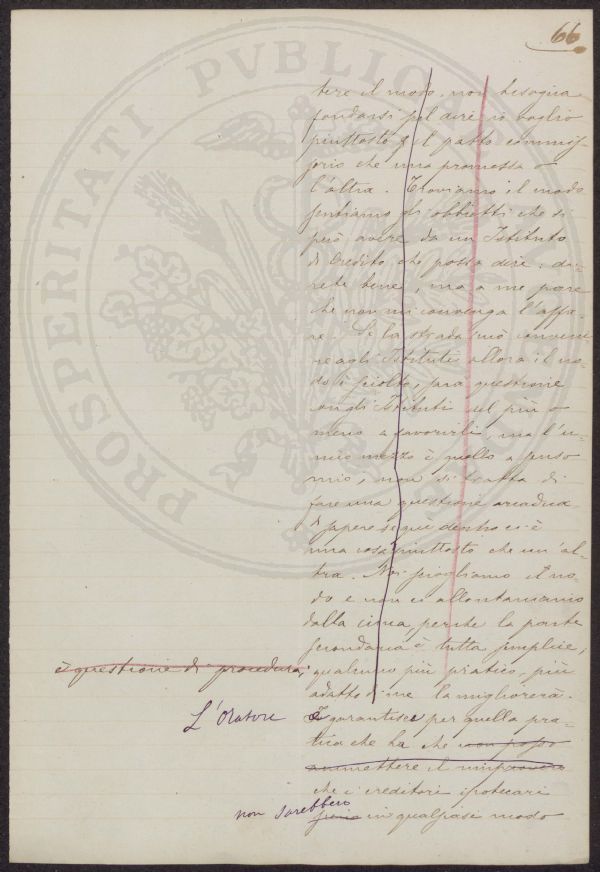 66
PROSPERITATI PVBLICAE
tere il modo. non bisogna
fondarsi sul dire io voglio
piuttosto il patto commis-
sorio che una promessa o
l'altra. Troviamo il modo
sentiamo gli obbietti che si
può avere da un Istituto
di Credito che possa dire: di-
rete bene, ma a me pare
che non mi convenga l'affa-
re. Se la strada può conveni
re agli Istituti allora il no-
do è sciolto, sarà questione
cogli Istituti sul più o
meno a favorirli, ma l'u-
nico mezzo è quello a senso
mio, non si tratta di
fare una questione
di sapere se qui dentro ci è
una cosa piuttosto che un'al-
tra. Noi sciogliamo il no-
do e non ci allontaniamo
dalla cima perché la parte
secondaria è tutta semplice,
è questione di procedura,
qualcuno più pratico, più
adatto di me la migliorerà.
L'Oratore
E garantisce per quella pra-
tica che ha che non posso
ammettere il rimprovero
che i creditori ipotecari
non sarebbero
in qualsiasi modo